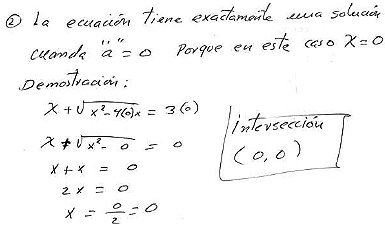 ② La ecuación tiene exactamente una solución
cuando "a" = 0 porque en este caso X = 0
Demostración:
X + √x² - 4(0)x = 3(0)
X + √x² - 0 = 0
x + x = 0
2x = 0
x = 0/2 = 0
intersección
(0,0)